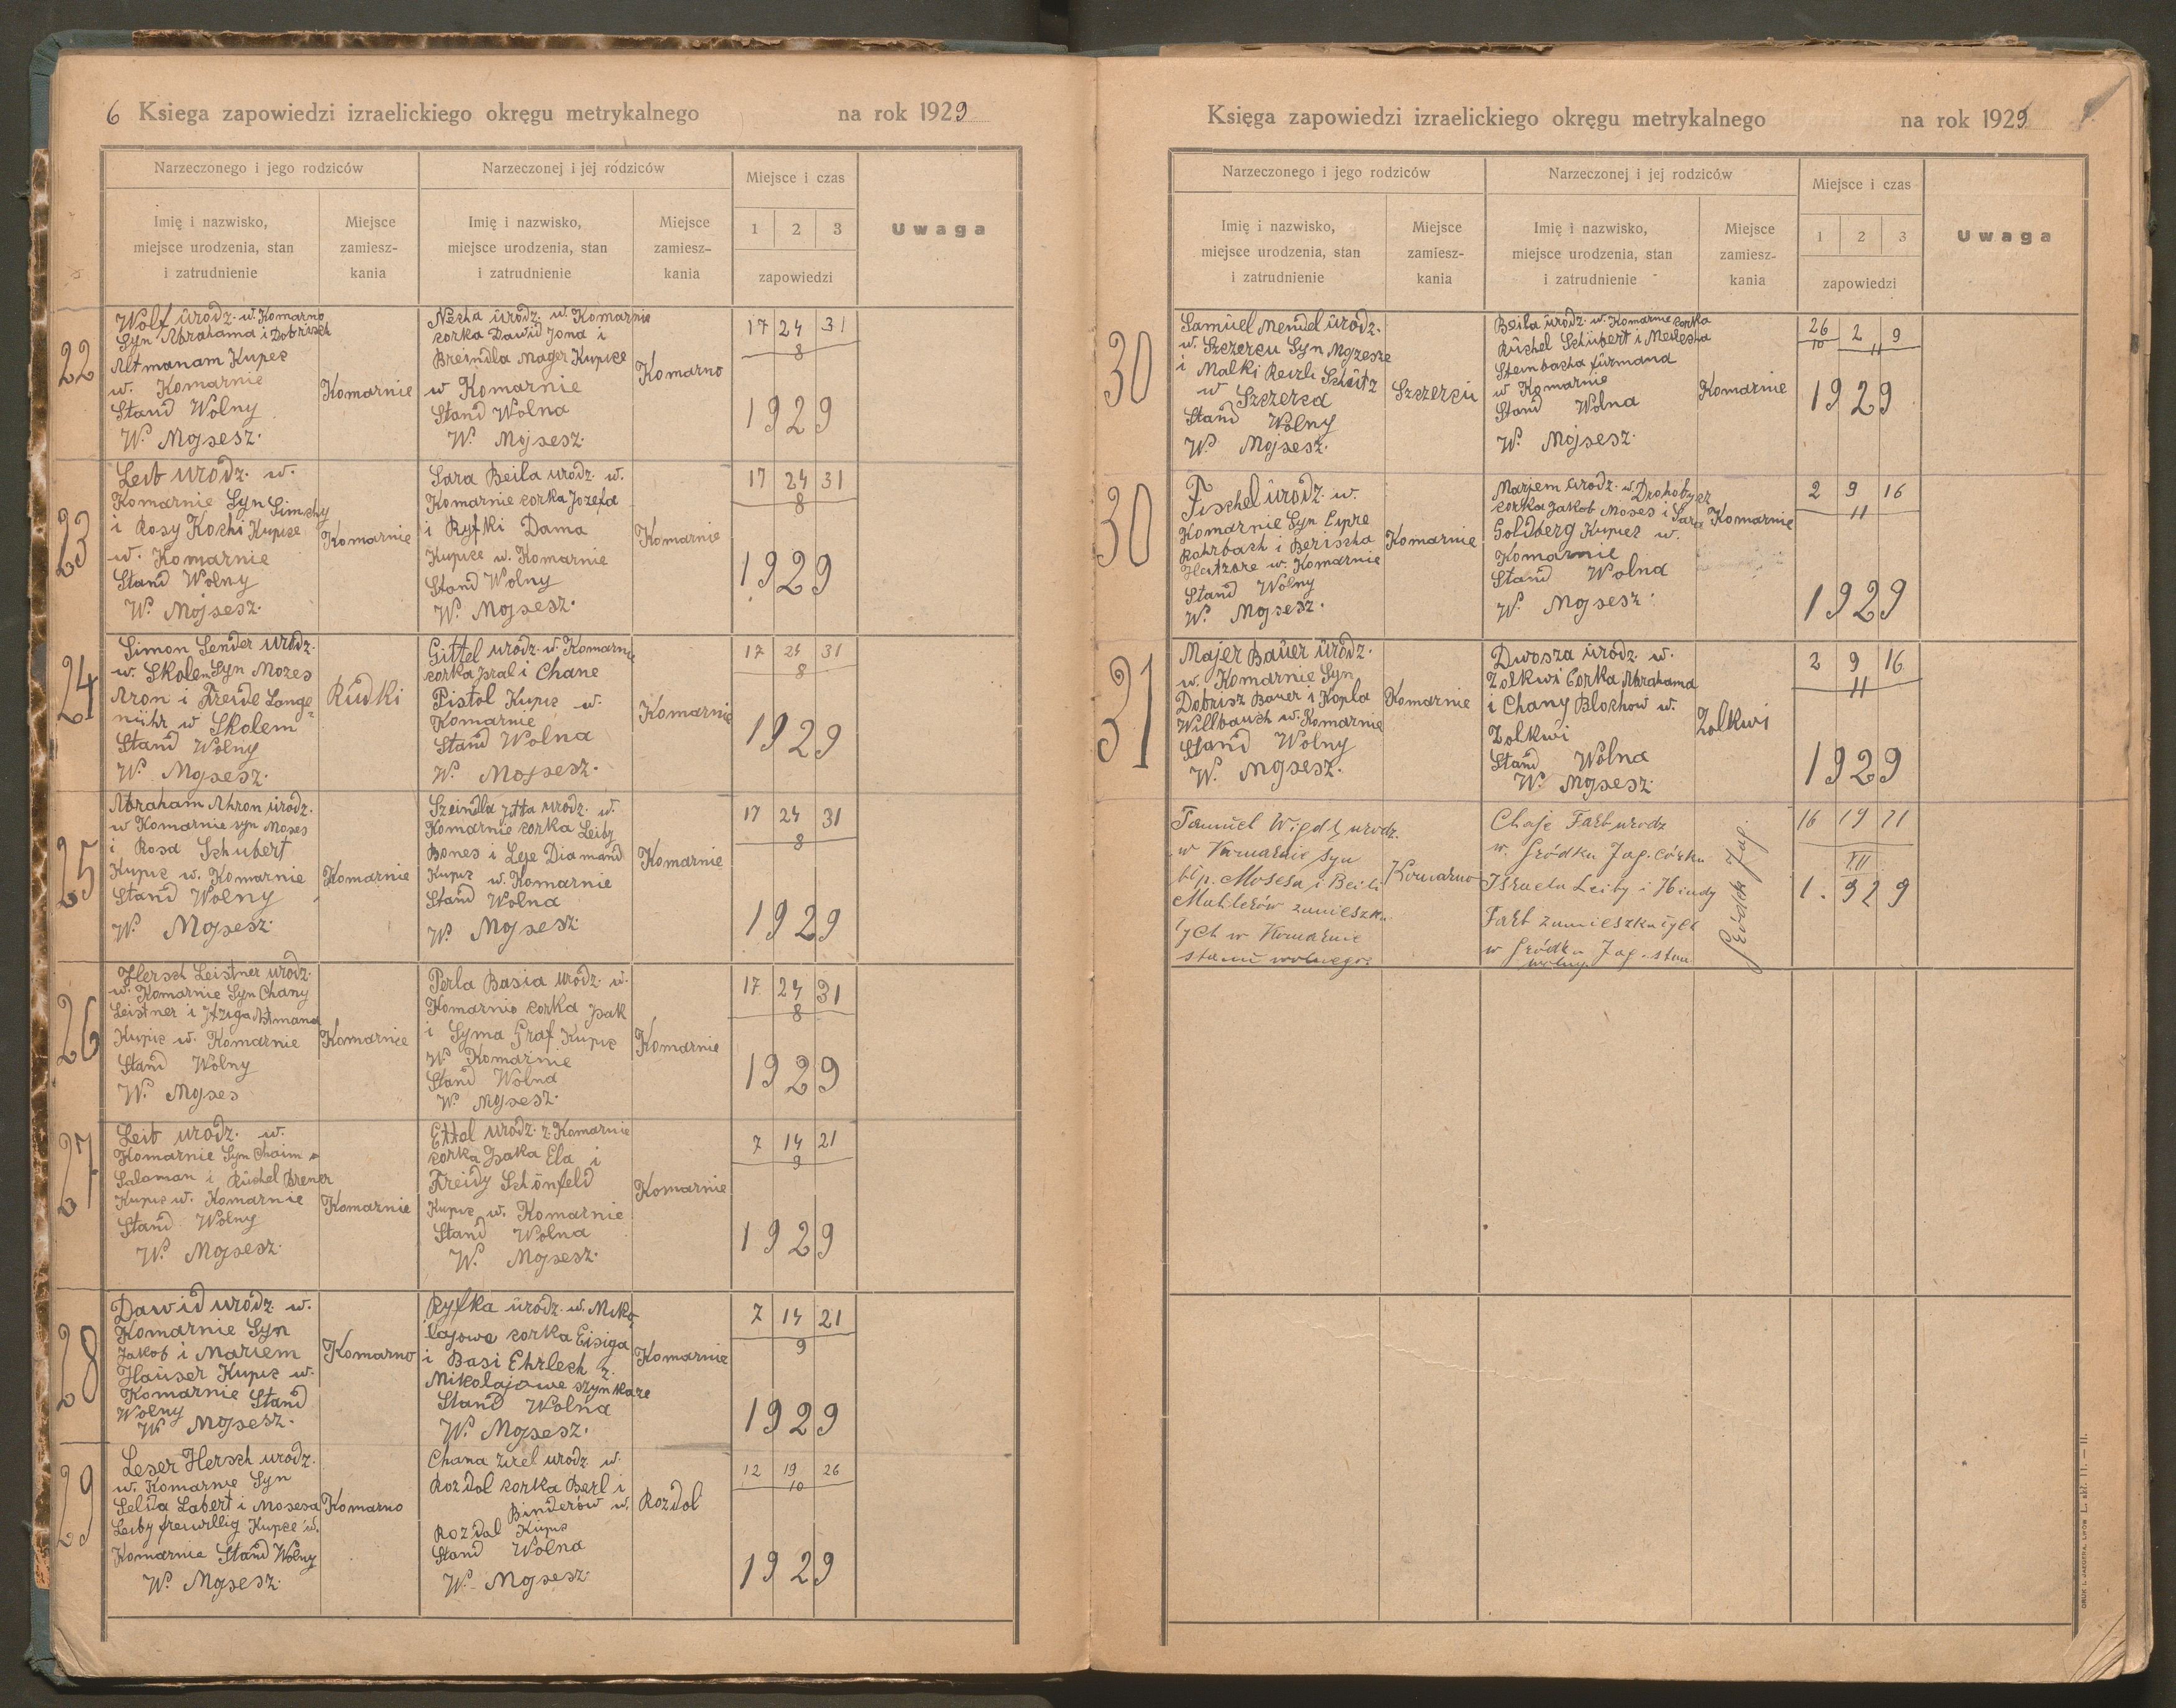 6 Księga zapowiedzi izraelickiego okręgu metrykalnego na rok 1929
Narzeczonego i jego rodziców
Narzeczonej i jej rodziców
Miejsce i czas
Uwaga
Imię i nazwisko,
miejsce urodzenia, stan
i zatrudnienie
Miejsce
zamiesz-
kania
Imię i nazwisko,
miejsce urodzenia, stan
i zatrudnienie
Miejsce
zamiesz-
kania
1 2 3
zapowiedzi
22
Wolf urodz. w. Komarno
Syn Abrahama i Dobrisch
Altmanam Kupiec
w. Komarnie
Stand Wolny
W. Mojsesz.
Komarnie
Necha urodz. w. Komarnie
corka Dawid Jona i
Breindla Mager Kupice
w Komarnie
Stand Wolna
W. Mojsesz.
Komarno
17 24 31
8
1929
23
Leib urodz. w.
Komarnie Syn Simchy
i Rosy Kochi Kupice
w. Komarnie
Stand Wolny
W. Mojsesz.
Komarnie
Sara Beila urodz. w.
Komarnie corka Jozefa
i Ryfki Dama
Kupice w. Komarnie
Stand Wolny
W. Mojsesz.
Komarnie
17 24 31
8
1929
24
Simon Sender urodz.
w. Skolem Syn Mozes
Aron i Freide Lange-
nühr w Skolem
Stand Wolny
W. Mojsesz.
Rudki
Gittel urodz. w. Komarnie
corka Jsral i Chane
Pistol Kupic w.
Komarnie
Stand Wolna
W. Mojsesz.
Komarnie
17 24 31
8
1929
25
Abraham Ahron urodz.
w Komarnie syn Moses
i Rosa Schubert
Kupic w. Komarnie
Stand Wolny
W. Mojsesz.
Komarnie
Szeindla Jtta urodz. w.
Komarnie corka Leiby
Bones i Leje Diamand
Kupic w. Komarnie
Stand Wolna
W. Mojsesz.
Komarnie
17 24 31
8
1929
26
Hersch Leistner urodz.
w. Komarnie Syn Chany
Leistner i Jtziga Altmana
Kupic w. Komarnie
Stand Wolny
W. Mojses
Komarnie
Perla Basia urodz. w.
Komarnio corka Jsak
i Syma Graf Kupic
W. Komarnie
Stand Wolna
W. Mojsesz.
Komarnie
17 24 31
8
1929
27
Leib urodz. w.
Komarnie Syn Chaim
Salaman i Ruchel Brener
Kupic w. Komarnie
Stand Wolny
W. Mojsesz.
Komarnie
Ettel urodz. z Komarnie
corka Jsaka Ela i
Freidy Schönfeld
Kupic w. Komarnie
Stand Wolna
W. Mojsesz.
Komarnie
7 14 21
9
1929
28
Dawid urodz. w.
Komarnie Syn
Jakob i Mariem
Hauser Kupic w.
Komarnie Stand
Wolny
W. Mojsesz.
Komarno
Ryfka urodz. w. Miko-
lajowe corka Eisiga
i Basi Ehrlech z.
Mikolajowe szynkare
Stand Wolna
W. Mojsesz.
Komarnie
7 14 21
9
1929
29
Leser Hersch urodz.
w. Komarnie Syn
Selda Labert i Mosesa
Leiby freiwillig Kupice w.
Komarnie Stand Wolny
W. Mojsesz.
Komarno
Chana Zirel urodz. w.
Rozdol corka Berl i
Binderów w.
Rozdol Kupic
Stand Wolna
W. Mojsesz.
Rozdol
12 19 26
10
1929
Księga zapowiedzi izraelickiego okręgu metrykalnego na rok 1929
Narzeczonego i jego rodziców
Narzeczonej i jej rodziców
Miejsce i czas
Uwaga
Imię i nazwisko,
miejsce urodzenia, stan
i zatrudnienie
Miejsce
zamiesz-
kania
Imię i nazwisko,
miejsce urodzenia, stan
i zatrudnienie
Miejsce
zamiesz-
kania
1 2 3
zapowiedzi
30
Samuel Mendel urodz.
w. Szczercu Syn Mojzesze
i Malki Reizli Schütz
w Szczerca
Stand Wolny
W. Mojsesz.
Szczerciu
Beila urodz. w. Komarnie corka
Ruchel Schubert i Menescha
Steinbacha furmana
w Komarnie
Stand Wolna
W. Mojsesz.
Komarnie
26 2 9
10 11
1929
30
Fischel urodz. w.
Komarnie Syn Cipre
Rohrbach i Berischa
Hatzare w. Komarnie
Stand Wolny
W. Mojsesz.
Komarnie
Marjem urodz. w. Drohobycz
corka Jakob Moses i Sara
Goldberg Kupiec w.
Komarnie
Stand Wolna
W. Mojsesz.
Komarnie
2 9 16
11
1929
31
Majer Bauer urodz.
w. Komarnie Syn
Dobrisz Bauer i Kopla
Willbauch w. Komarnie
Stand Wolny
W. Mojsesz.
Komarnie
Dwosza urodz. w.
Zolkwi Corka Abrahama
i Chany Blochow w.
Zolkwi
Stand Wolna
W. Mojsesz.
Zolkwi
2 9 16
11
1929
Samuel urodz.
w Komarnie syn
błp. Mosesa i Beili
Mahlerów zamieszka
łych w Komarnie
stanu wolnego.
Komarno
Chaje Farb urodz
w. Gródku Jag. córka
Israela Leiby i Hindy
Farb zamieszkałych
w Gródku Jag. stan
wolny
Gródek Jag.
16 19 21
XII
1.929
DRUK I. JAEGERA, LWÓW L. skł. 11.—11.